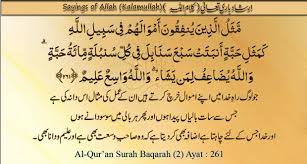 Sayings of Allah (Kalamullah)    ارشاد باری تعالیٰ (کلام اللہ)
مَّثَلُ الَّذِينَ يُنفِقُونَ أَمْوَالَهُمْ فِي سَبِيلِ اللَّهِ
كَمَثَلِ حَبَّةٍ أَنبَتَتْ سَبْعَ سَنَابِلَ فِي كُلِّ سُنبُلَةٍ مِّائَةُ حَبَّةٍ
وَاللَّهُ يُضَاعِفُ لِمَن يَشَاءُ وَاللَّهُ وَاسِعٌ عَلِيمٌ ﴿٢٦١﴾
جو لوگ راہِ خدا میں اپنے اموال خرچ کرتے ہیں ان کے عمل کی مثال اس دانہ کی ہے
جس سے سات بالیاں پیدا ہوں اور پھر ہر بالی میں سو سو دانے ہوں
اور خدا جس کے لئے چاہتا ہے اضافہ بھی کردیتا ہے کہ وہ صاحبِ وسعت بھی ہے اور علیم و دانا بھی
Al-Qur'an Surah Baqarah (2) Ayat : 261